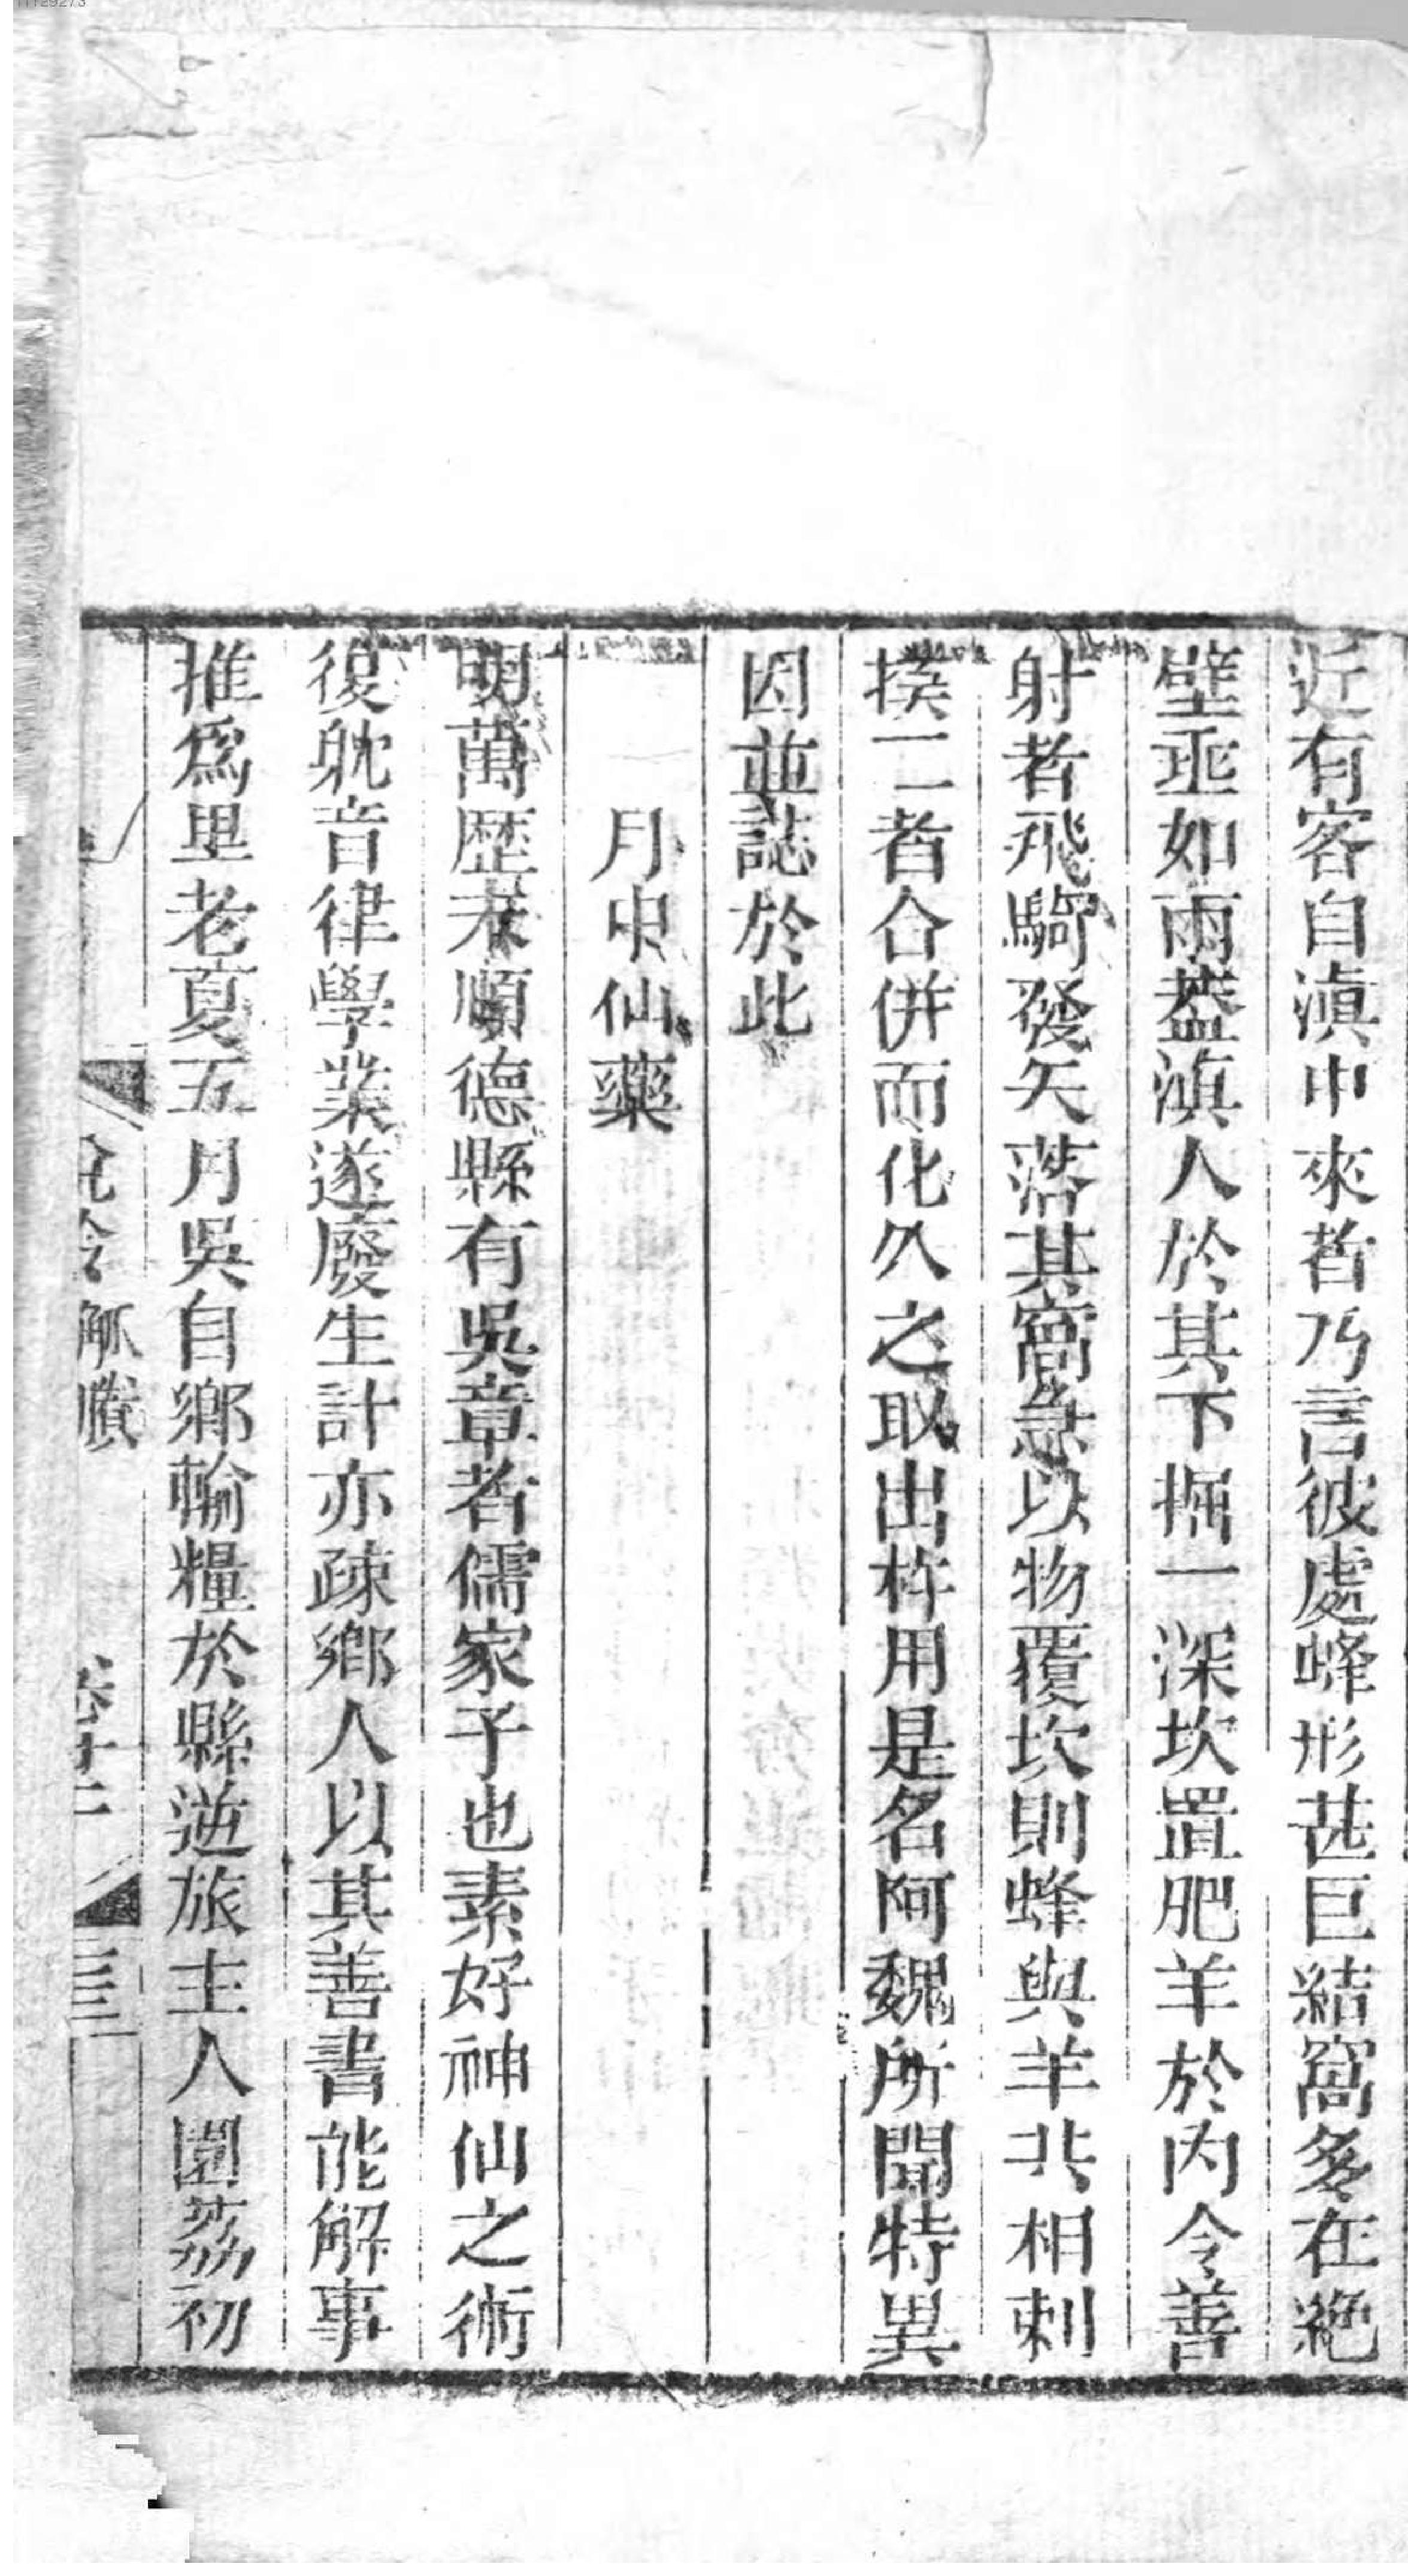 近有客自滇中來者乃言彼處蜂形甚巨結窩多在絕
壁垂如雨蓋滇人於其下掘一深坎置肥羊於內令善
射者飛騎發矢落其窩急以物覆坎則蜂與羊共相刺
撲二者合併而化久之取出杵用是名阿魏所聞特異
因並誌於此
月中仙藥
明萬歷末順德縣有吳章者儒家子也素好神仙之術
復躭音律學業遂廢生計亦疎鄉人以其善書能解事
推為里老夏五月吳自鄉輸糧於縣逆旅主人園荔初
說鈴 觚賸 卷十二 三三
11129273